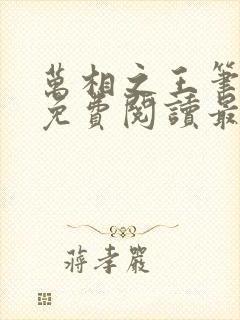 萬相之王筆
免費閱讀最
蔣孝嚴